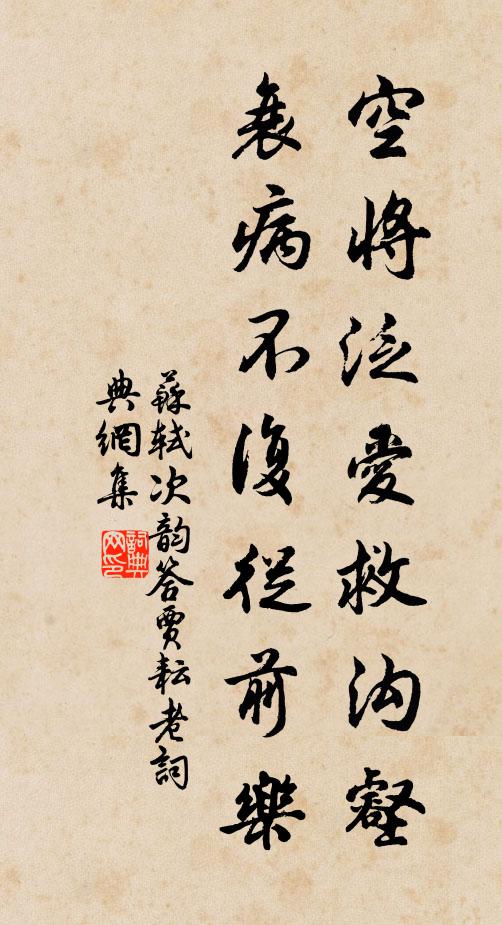 空將泛愛救沟壑
衰病不復從前樂
蘇軾次韵答賈耘老詞
典網集
詞典
网印